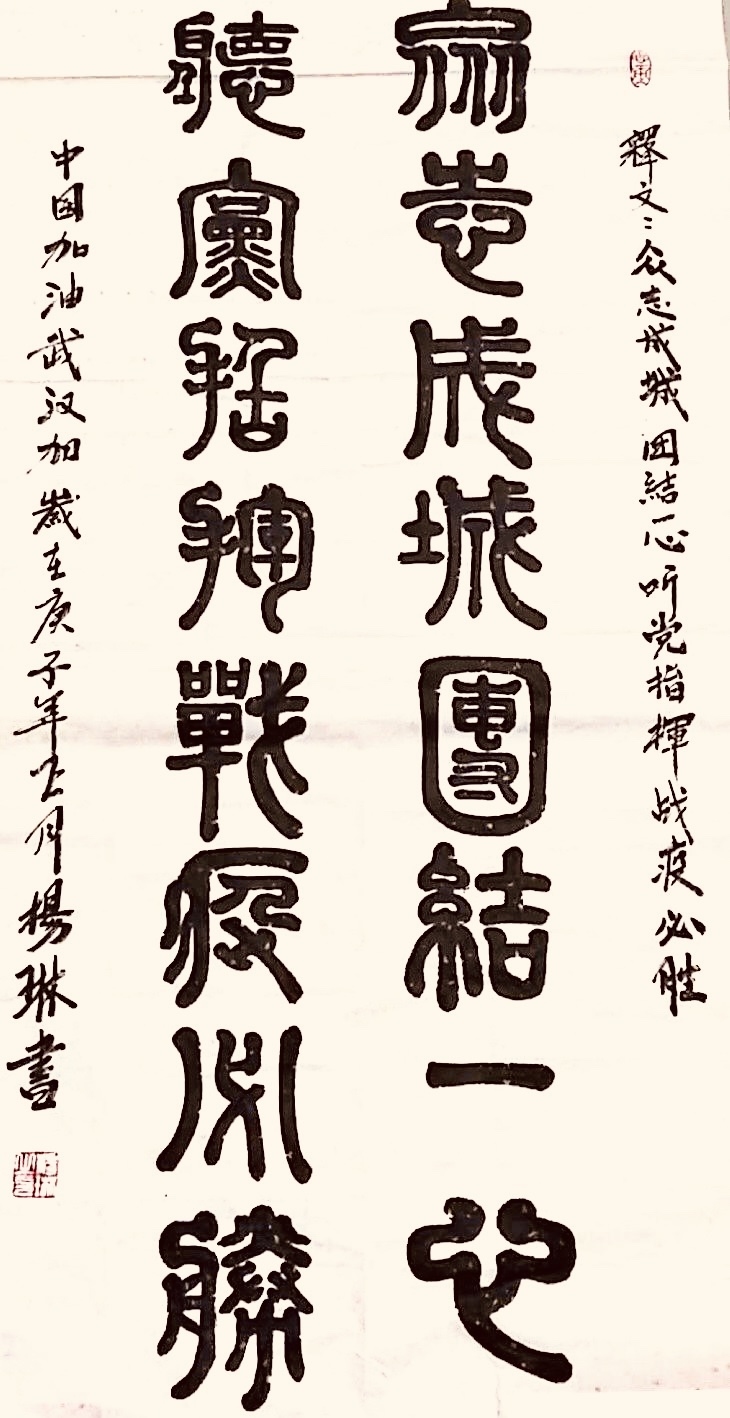 释文：众志成城团结一心听党指挥战疫必胜
众志成城團結一心
聽黨指揮戰疫必勝
中国加油武汉加岁在庚子年 月楊琳書